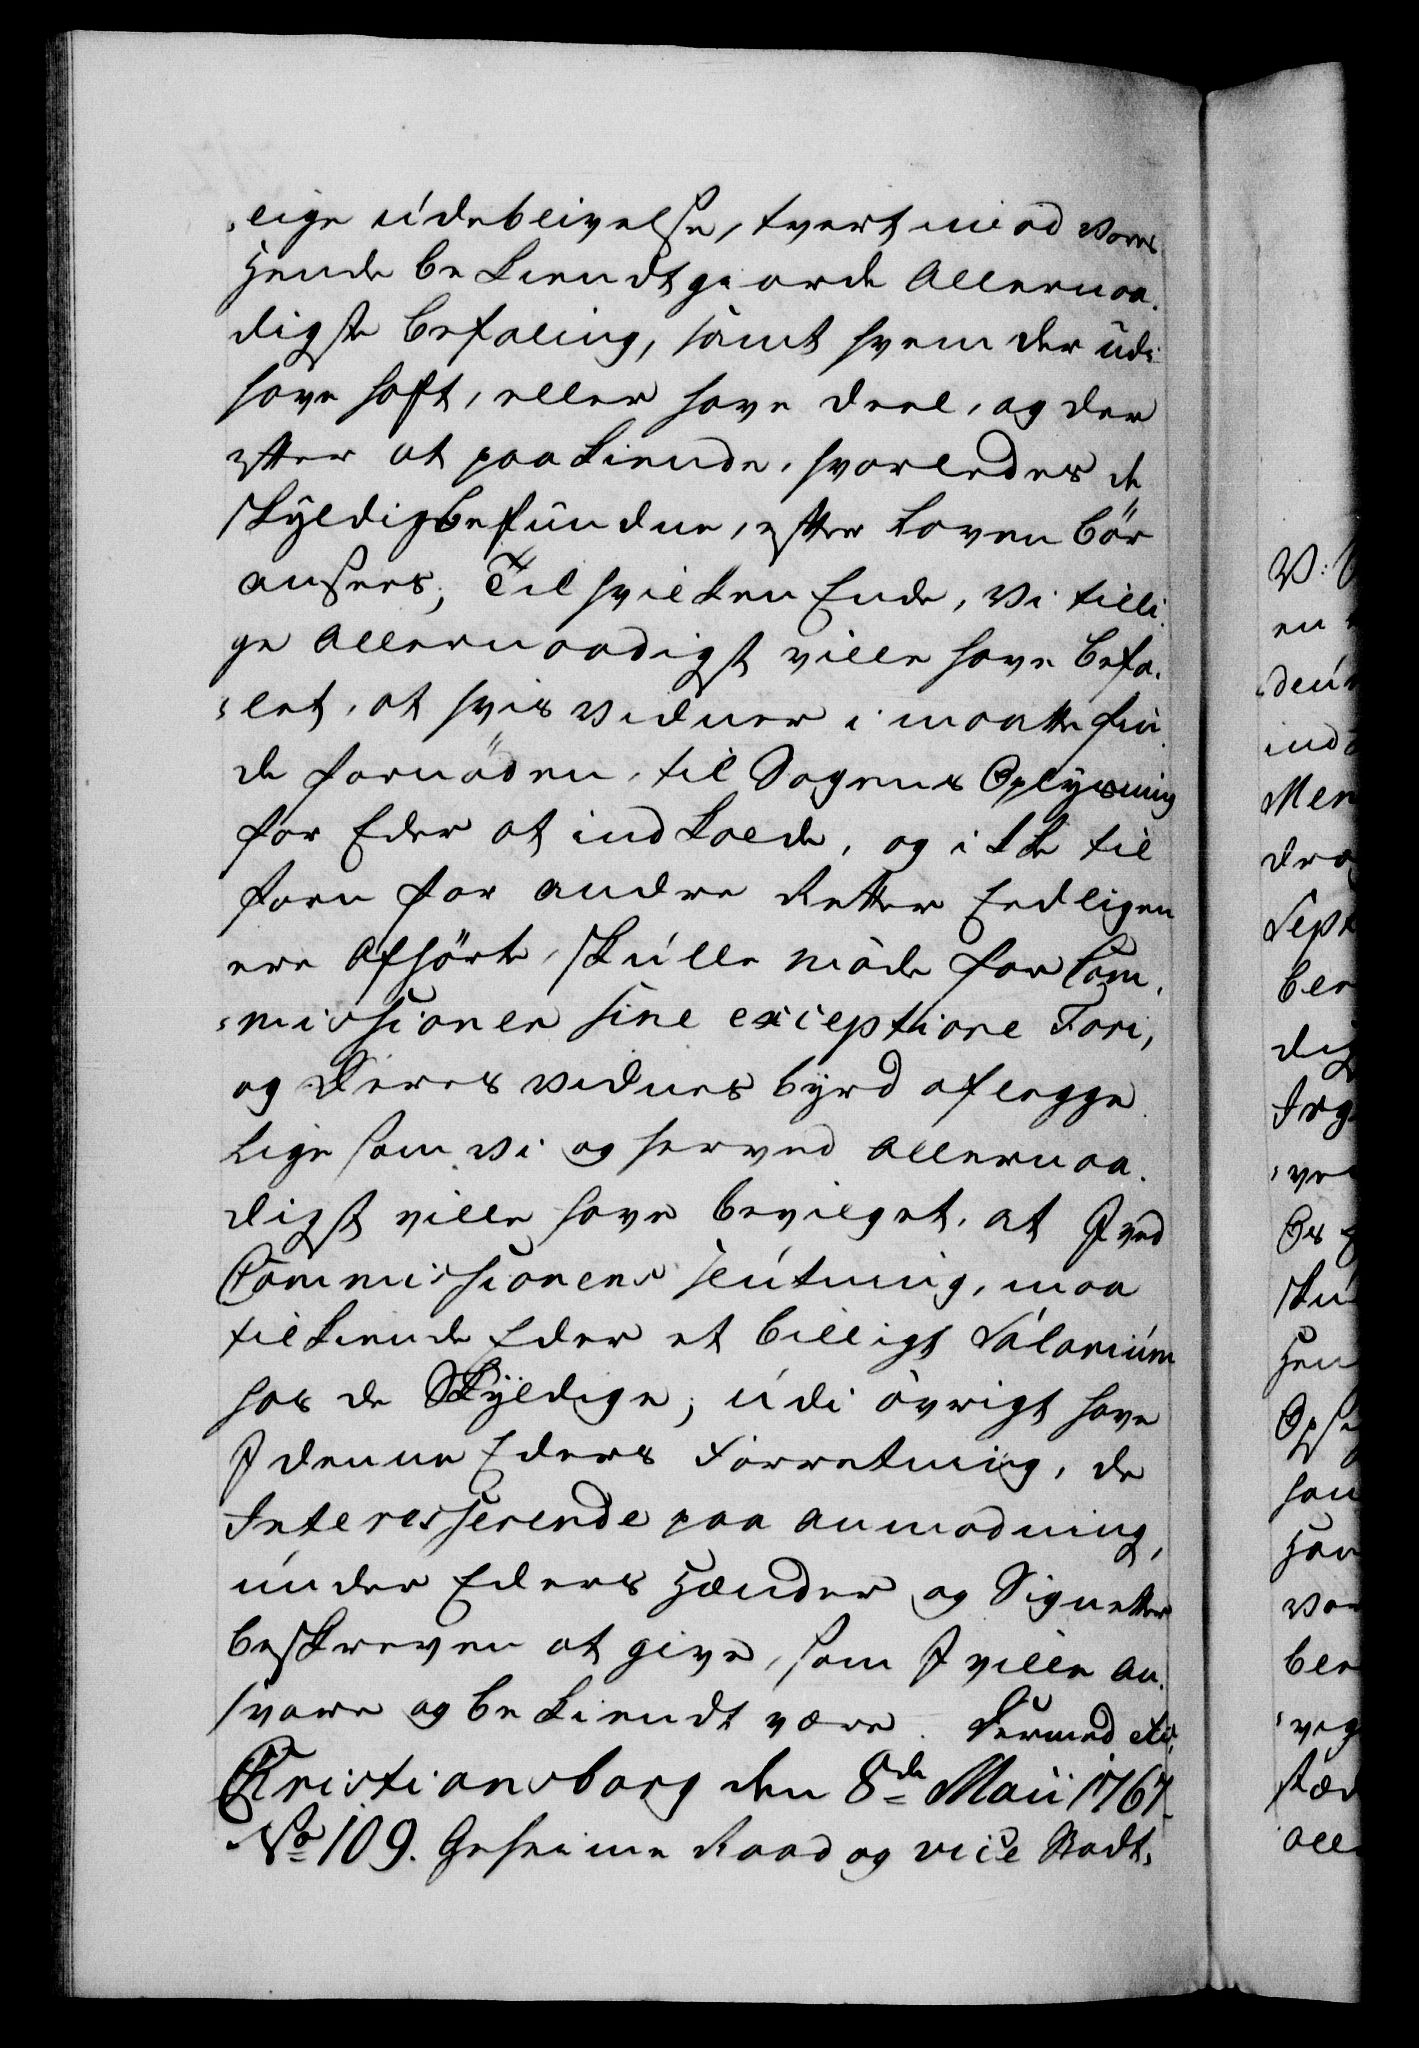 lige udeblivelse, tvert imod vores
hende bekiendtgiorde Allernaa-
digste befaling, samt hvem der udi
have haft, eller have deel, og der
efter at paakiende, hvorledes de
skyldigbefundne, efter Loven bör
ansees; Til hvilken Ende, vi tilli-
ge Allernaadigst ville have befa-
let, at hvis Vidner i maatte fin-
de fornöden, til Sagens Oplysning
for Eder at indkalde, og ikke til-
forn for andre Retter Eedligen
ere Afhörte, skulle möde for Com-
missionen sine exceptione Fori,
og Deres Vidnesbyrd aflegge
Ligesom vi og herved Allernaa-
digst ville have bevilget, at I ved
Commissionens slutning, maa
tilkiende Eder et billigt Salarium
hos de Skyldige; udi övrigt have
I denne Eders Forretning, de
Interesserende paa anmodning,
under Eders Hænder og Signetter
beskreven at give, som I ville an-
svare og bekiendt være. Dermed etc.
Christiansborg den 8de Maii 1767.
No 109. Geheime Raad og vice Stadt-